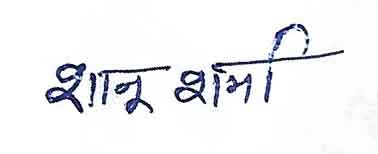 शानू शर्मा